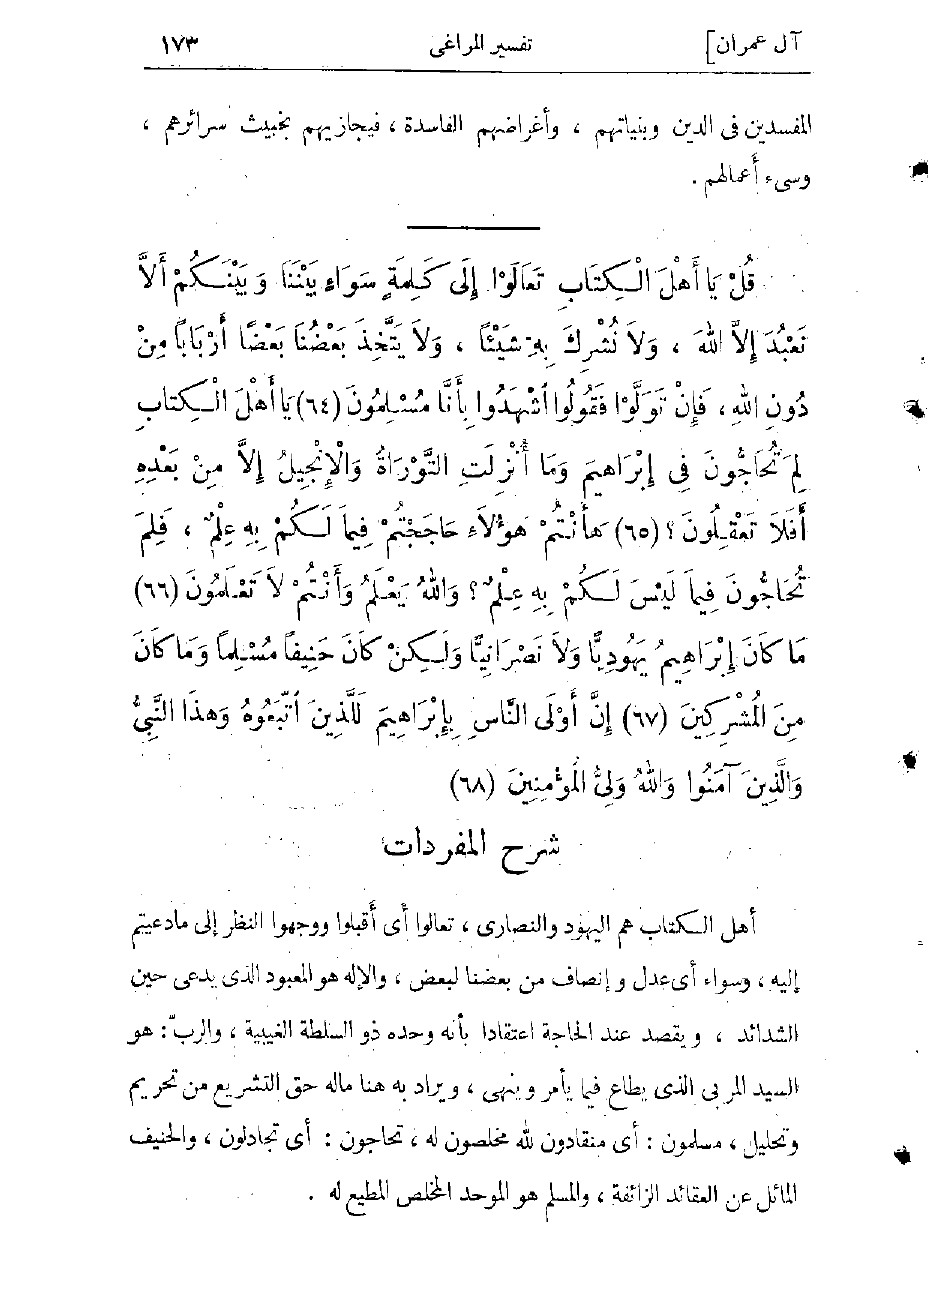 آل عمران] تفسير المراغى ١٧٣
المفسدين فى الدين وبنياتهم ، وأغراضهم الفاسدة ، فيجازيهم بخبيث سرائرهم ،
وسىء أعمالهم .
قُلْ يَا أَهْلَ الْكِتَابِ تَعَالَوْا إِلَى كَلِمَةٍ سَوَاءٍ بَيْنَنَا وَبَيْنَكُمْ أَلاَّ
نَعْبُدَ إِلاَّ اللهَ ، وَلاَ نُشْرِكَ بِهِ شَيْئًا ، وَلاَ يَتَّخِذَ بَعْضُنَا بَعْضًا أَرْبَاباً مِنْ
دُونِ اللهِ ، فَإِنْ تَوَلَّوْا فَقُولُوا ٱشْهَدُوا بِأَنَّا مُسْلِمُونَ (٦٤) يَا أَهْلَ الْكِتَابِ
لِمَ تُحَاجُّونَ فِى إِبْرَاهِيمَ وَمَا أُنْزِلَتِ التَّوْرَاةُ وَالْإِنْجِيلُ إِلاَّ مِنْ بَعْدِهِ
أَفَلاَ تَعْقِلُونَ ؟ (٦٥) هَأَنْتُمْ هَؤُلاَءِ حَاجَجْتُمْ فِيمَا لَكُمْ بِهِ عِلْمٌ ، فَلِمَ
تُحَاجُّونَ فِيمَا لَيْسَ لَكُمْ بِهِ عِلْمٌ ؟ وَاللهُ يَعْلَمُ وَأَنْتُمْ لاَ تَعْلَمُونَ (٦٦)
مَا كَانَ إِبْرَاهِيمُ يَهُودِيًّا وَلاَ نَصْرَانِيًّا وَلَكِنْ كَانَ حَنِيفاً مُسْلِماً وَمَا كَانَ
مِنَ الْمُشْرِكِينَ (٦٧) إِنَّ أَوْلَى النَّاسِ بِإِبْرَاهِيمَ لَلَّذِينَ ٱتَّبَعُوهُ وَهَذَا النَّبِىُّ
وَالَّذِينَ آمَنُوا وَاللهُ وَلِىُّ الْمُؤْمِنِينَ (٦٨)
شرح المفردات
أهل الكتاب هم اليهود والنصارى ، تعالوا أى أقبلوا ووجهوا النظر إلى مادعيتم
إليه ، وسواء أى عدل و إنصاف من بعضنا لبعض ، والإله هو المعبود الذى يدعى حين
الشدائد ، ويقصد عند الحاجة اعتقادا بأنه وحده ذو السلطة الغيبية ، والربّ : هو
السيد المربى الذى يطاع فيما يأمر وينهى ، ويراد به هنا ماله حق التشريع من تحريم
وتحليل ، مسلمون : أى منقادون لله مخلصون له ، تحاجون : أى تجادلون ، والحنيف
المائل عن العقائد الزائفة ، والمسلم هو الموحد المخلص المطيع له .